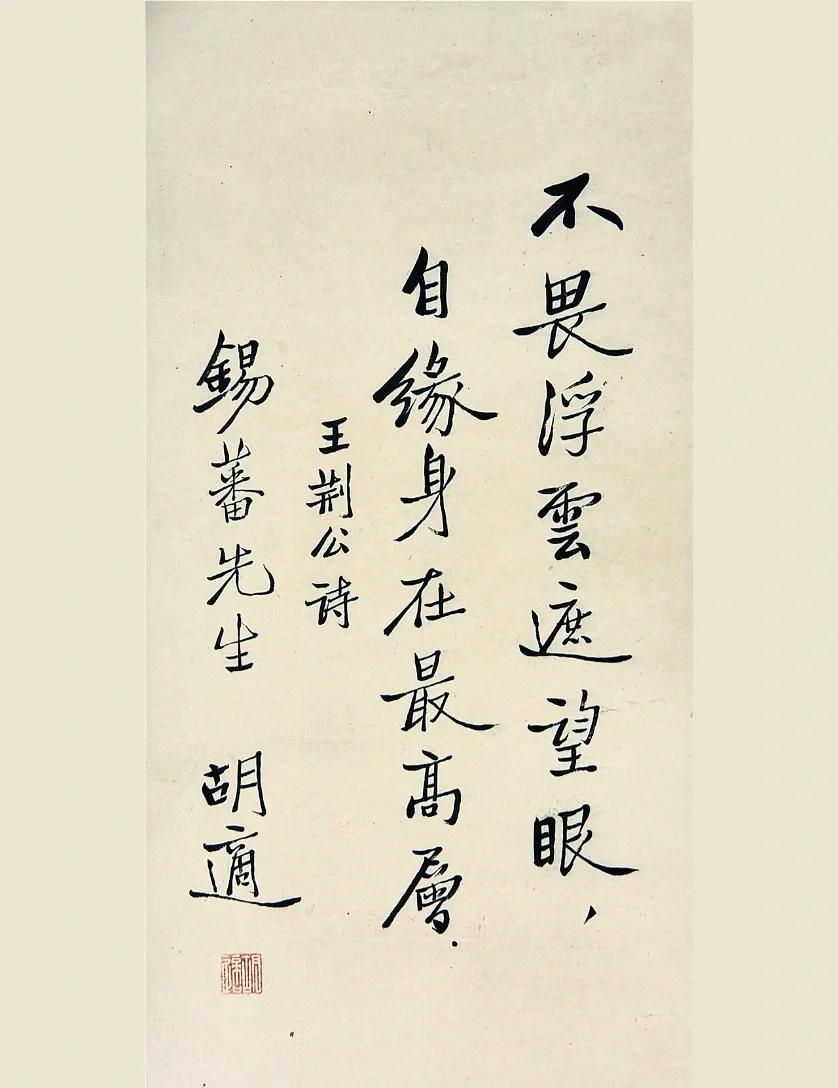 不畏浮雲遮望眼，
自緣身在最高層．
王荆公詩
錫蕃先生 胡適
胡適